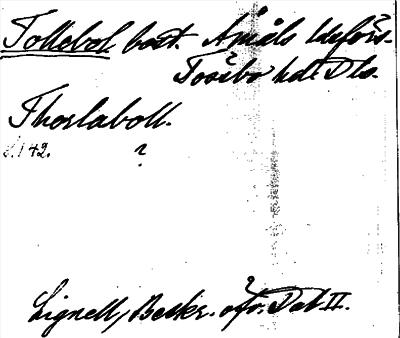 Tollebol bost. Åmåls ldsförs.
Tössbo hd. Dls.
Thorlaboll.
s. 142. ?
Lignell, Beskr. öfv. Dal II.